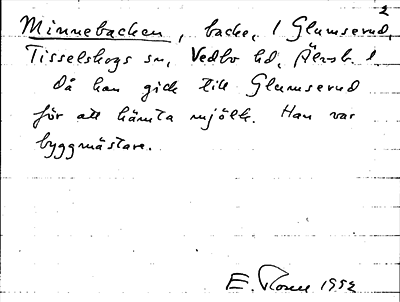 2
Minnebacken, backe, / Glumserud,
Tisselskogs sn, Vedbo hd, Älvsb. l
Då han gick till Glumserud
för att hämta mjölk. Han var
byggmästare.
E. 1952